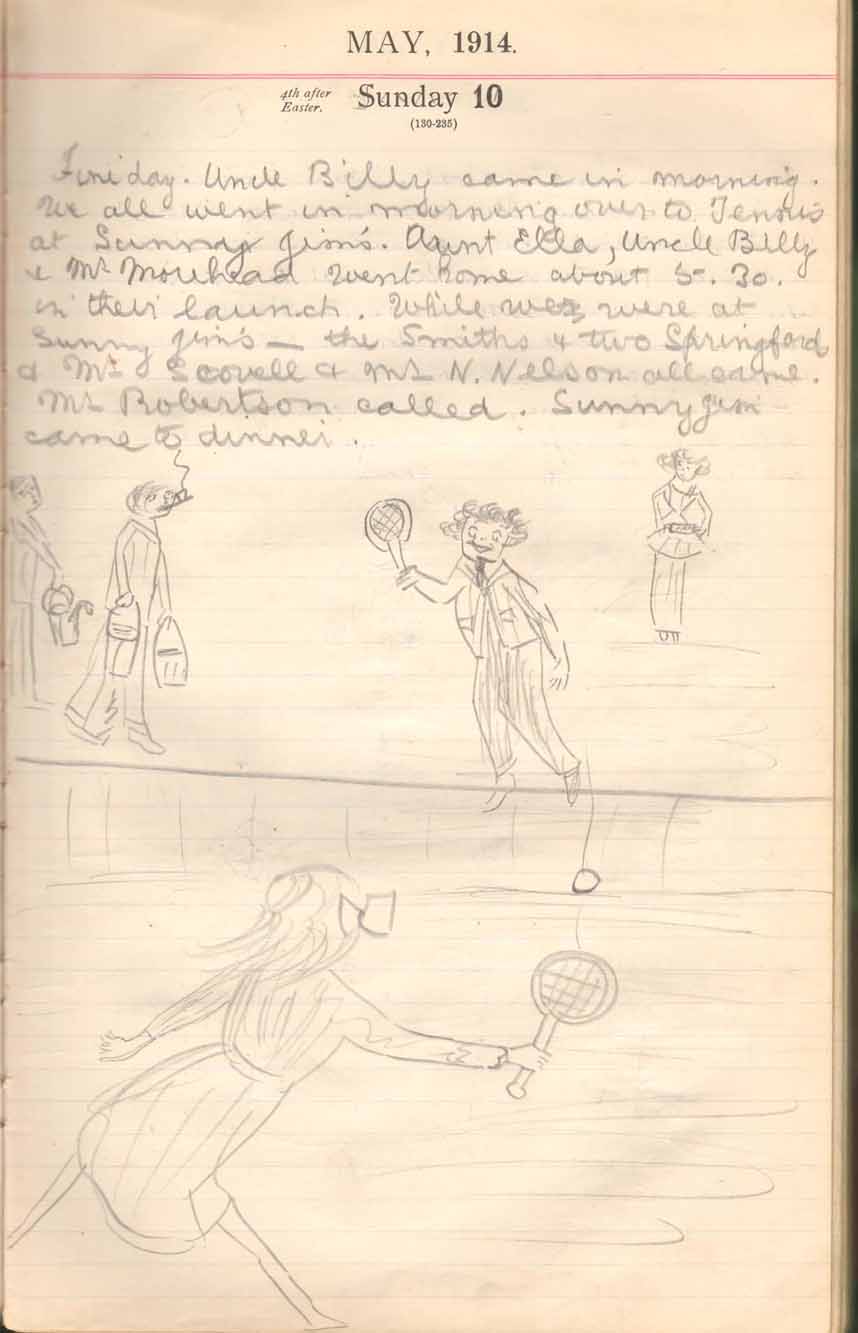 MAY, 1914.
4th after
Easter.
Sunday 10
(130-235)
Fine day. Uncle Billy came in morning.
We all went in morning over to Tennis
at Sunny Jim's. Aunt Ella, Uncle Billy
& Mr Morehead went home about 5.30.
in their launch. While were at
Sunny Jim's — the Smiths & two Springford
& Mr Scovell & Mr N. Nelson all came.
Mr Robertson called. Sunny Jim
came to dinner.